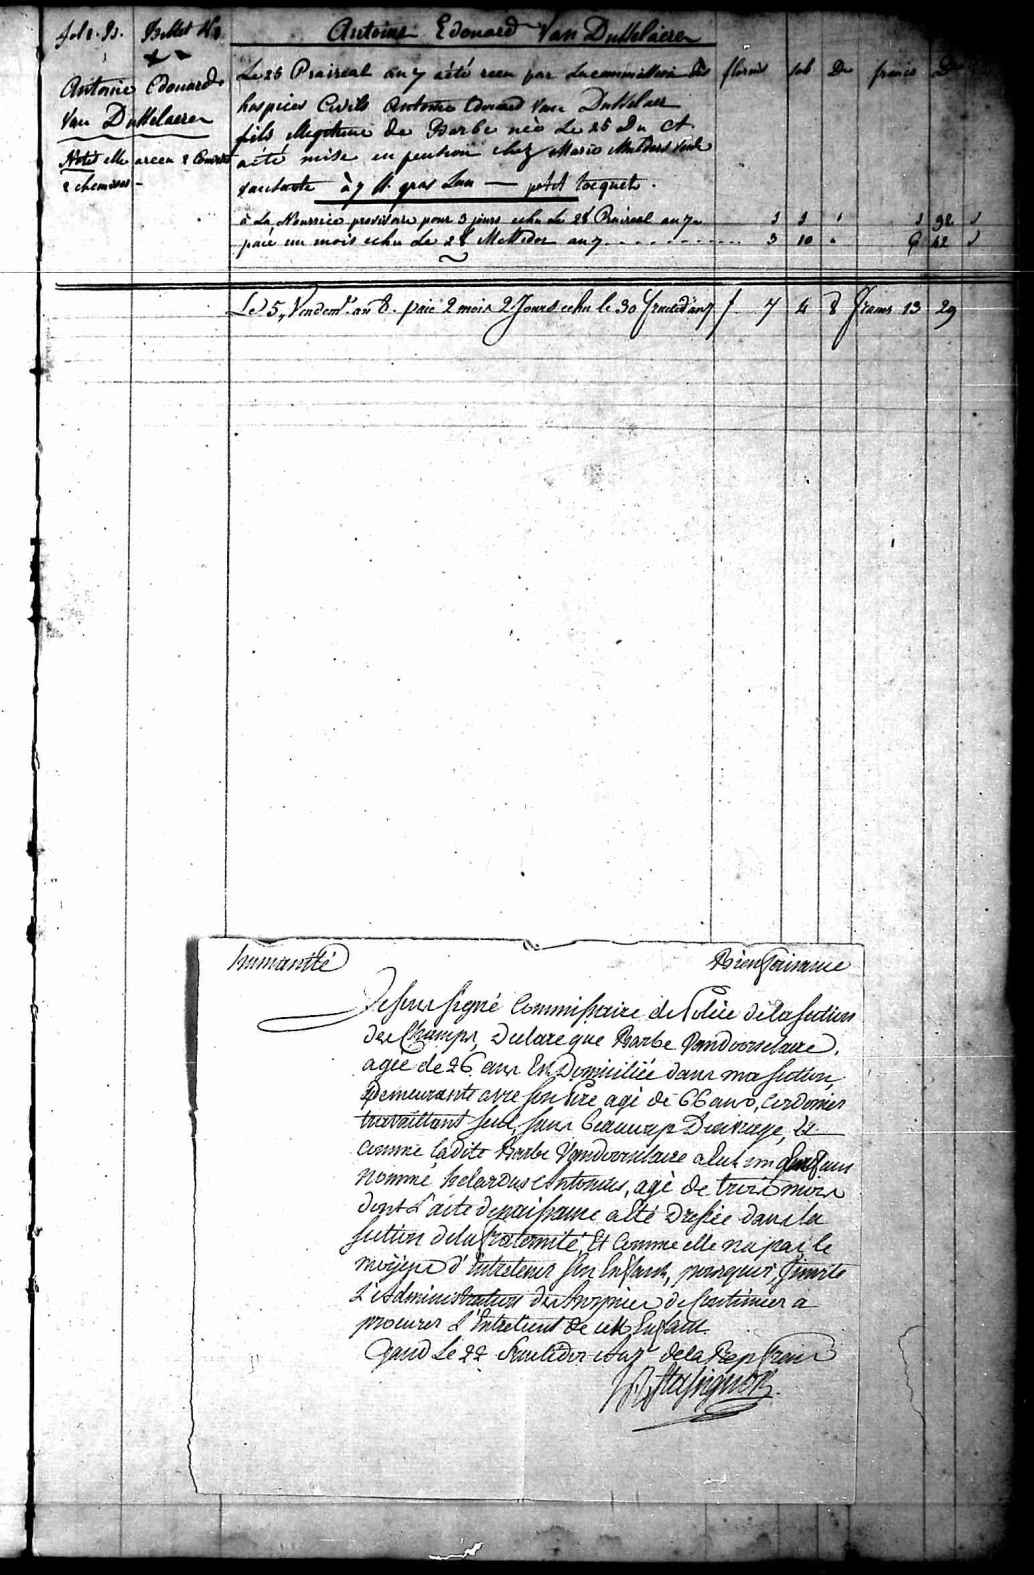 Antoine Edouard Van Dusselaeren
fol. 91. Billet No
Antoine Edouard
Van Dusselaeren
Nota elle a recu 2 Couvert
2 chemises -
florins sols De francs De
Le 25 Praireal an 7 a été recu par La commission des
hospices Civils Antoine Edouard Van Dusselaer
fils illegitime de Barbe née Le 25 du Ct
a été mise en pention chez Marie
à 7 gros L'an — petit tocquet.
à La Nourrice provisoire pour 3 jours echu Le 28 Praireal an 7 1 1 1 92
paié un mois echu Le 28 Messidor an 7 3 10 6 42
Le 5 Vendemr. an 8. paié 2 mois 2 Jours echu le 30 fructid an 7 f 7 4 8 francs 13 29
humanité Bienfaisance
Je sous signé Commissaire de Police de la section
des Champs, Declare que Barbe Vandoorselaere,
agée de 26 ans En Domiciliée dans ma section,
demeurante avec son Pere agé de 66 ans, Cordonier
travaillant seul sans beaucoup D'ouvrage, et
comme ladite Barbe Vandoorselaere a eut un Enfant
nommé Antonius, agé de trois mois
dont L'acte de naissance a été Dressée dans la
section de la fraternité Et Comme elle n'a pas le
moijens d'Entretenir son Enfant, pourquoi j'invite
L'Administration des hospices de Continuer a
procurer L'Entretient de cet Enfant.
Gand Le 22 de la Rep. franse